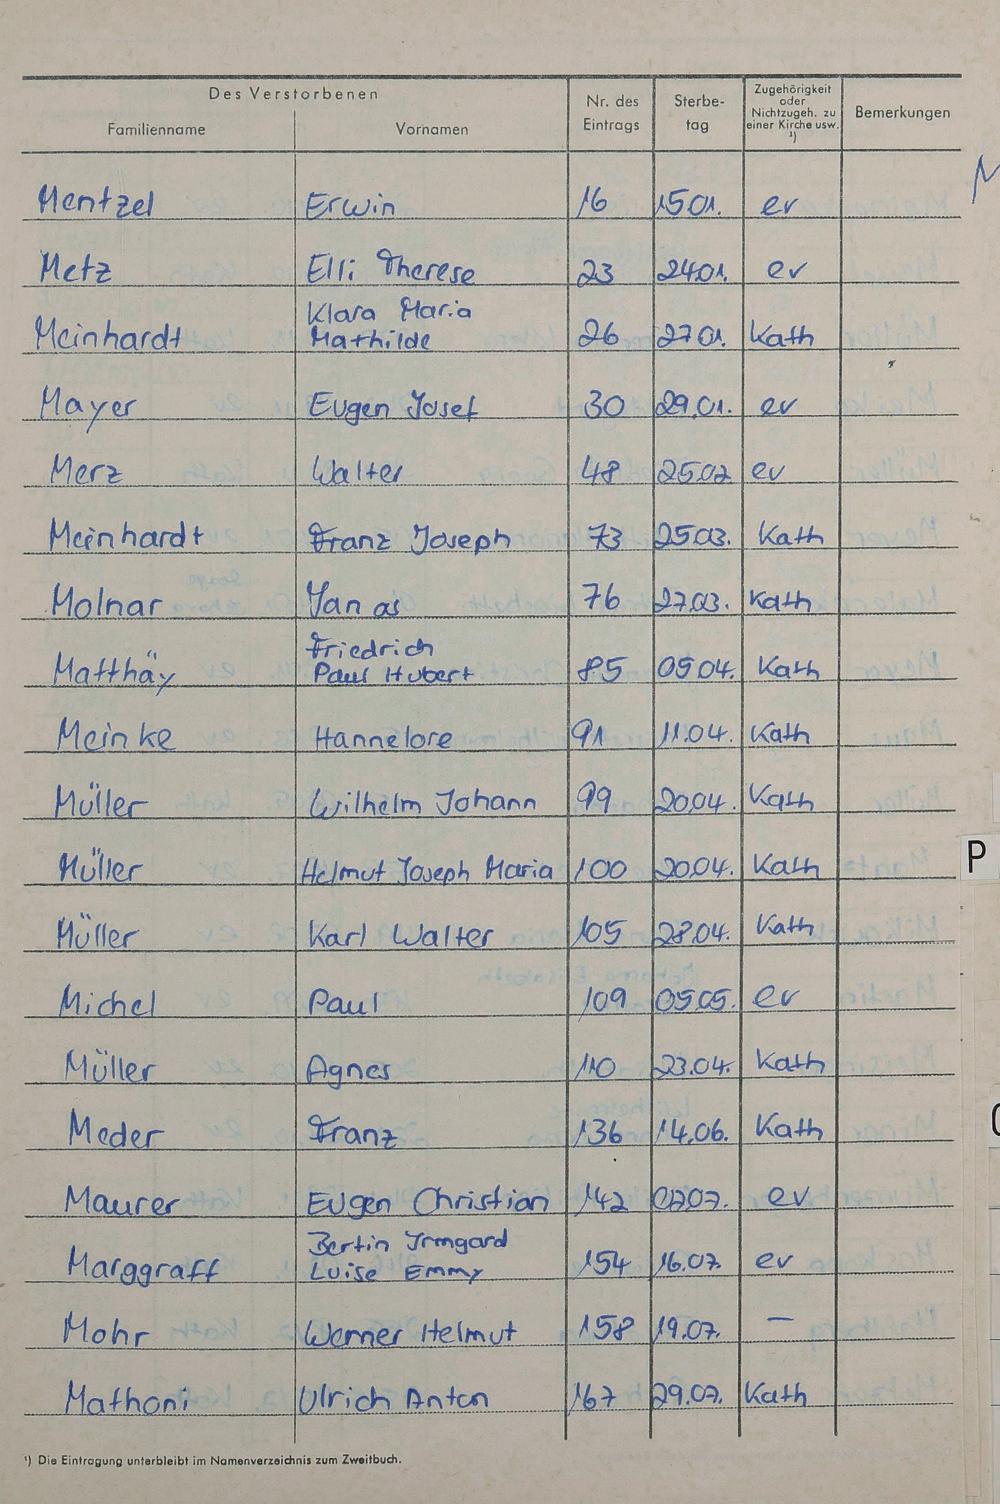 Des Verstorbenen
Familienname Vornamen Nr. des Eintrags Sterbe-tag Zugehörigkeit oder Nichtzugeh. zu einer Kirche usw. ¹) Bemerkungen
Mentzel Erwin 16 15.01. ev
Metz Elli Therese 23 24.01. ev
Klara Maria
Meinhardt Mathilde 26 27.01. Kath
Mayer Eugen Josef 30 29.01. ev
Merz Walter 48 25.02. ev
Meinhardt Franz Joseph 73 25.03. Kath
Molnar Janos 76 27.03. Kath
Friedrich
Matthäy Paul Hubert 85 05.04. Kath
Meinke Hannelore 91 11.04. Kath
Müller Wilhelm Johann 99 20.04. Kath
Müller Helmut Joseph Maria 100 20.04. Kath
P
Müller Karl Walter 105 28.04. Kath
Michel Paul 109 05.05. ev
Müller Agnes 110 23.04. Kath
Meder Franz 136 14.06. Kath
Maurer Eugen Christian 142 ev
Irmgard
Marggraff Luise Emmy 154 16.07. ev
Mohr Werner Helmut 158 19.07. —
Mathoni Ulrich Anton 167 29.07. Kath
¹) Die Eintragung unterbleibt im Namenverzeichnis zum Zweitbuch.